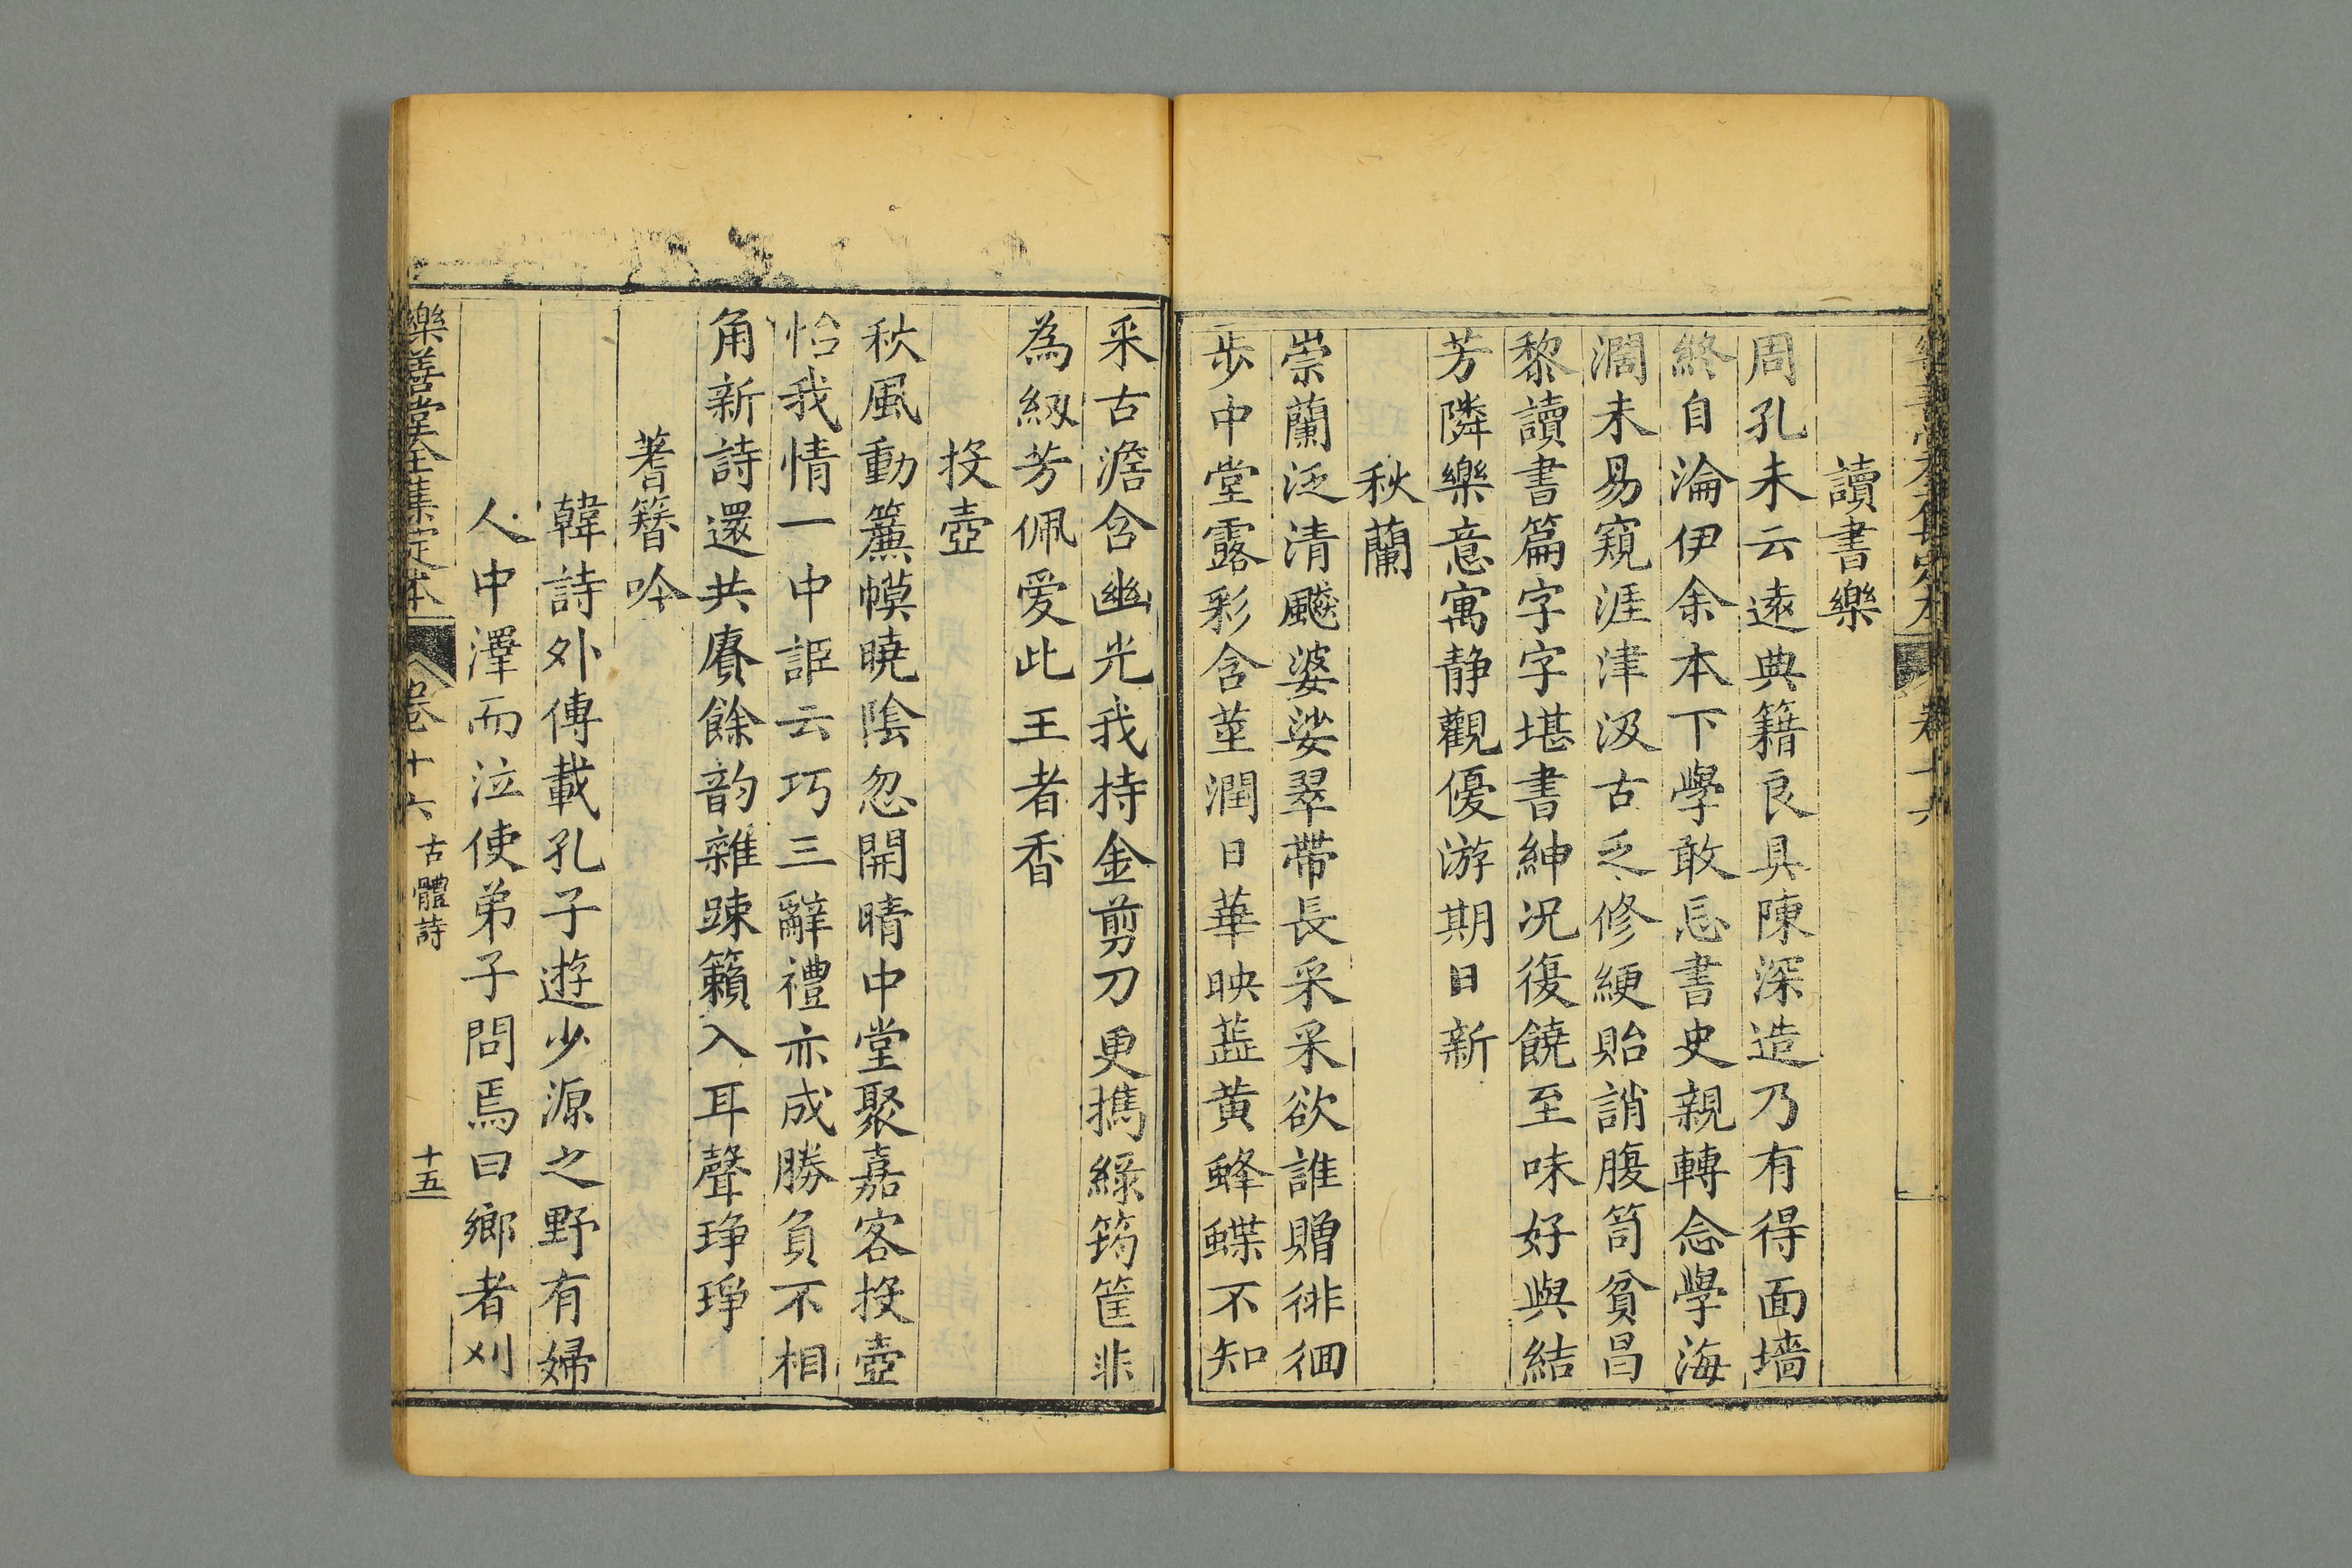 讀書樂
周孔未云遠典籍良具陳深造乃有得面墻
終自淪伊余本下學敢忘書史親轉念學海
濶未易窺涯津汲古乏修綆貽誚腹笥貧昌
黎讀書篇字字堪書紳况復饒至味好與結
芳隣樂意寓静觀優游期日新
秋蘭
崇蘭泛清飈婆娑翠帶長采采欲誰贈徘徊
步中堂露彩含莖潤日華映蕋黄蜂蝶不知
采古澹含幽光我持金剪刀更攜綠筠筐非
為紉芳佩爱此王者香
投壺
秋風動簾幙曉陰忽開晴中堂聚嘉客投壺
怡我情一中詎云巧三辭禮亦成勝負不相
角新詩還共賡餘韵雜踈籟入耳聲琤琤
蓍簪吟
韓詩外傳載孔子遊少源之野有婦
人中澤而泣使弟子問焉曰鄉者刈
樂善堂全集定本 卷十六 古體詩 十五